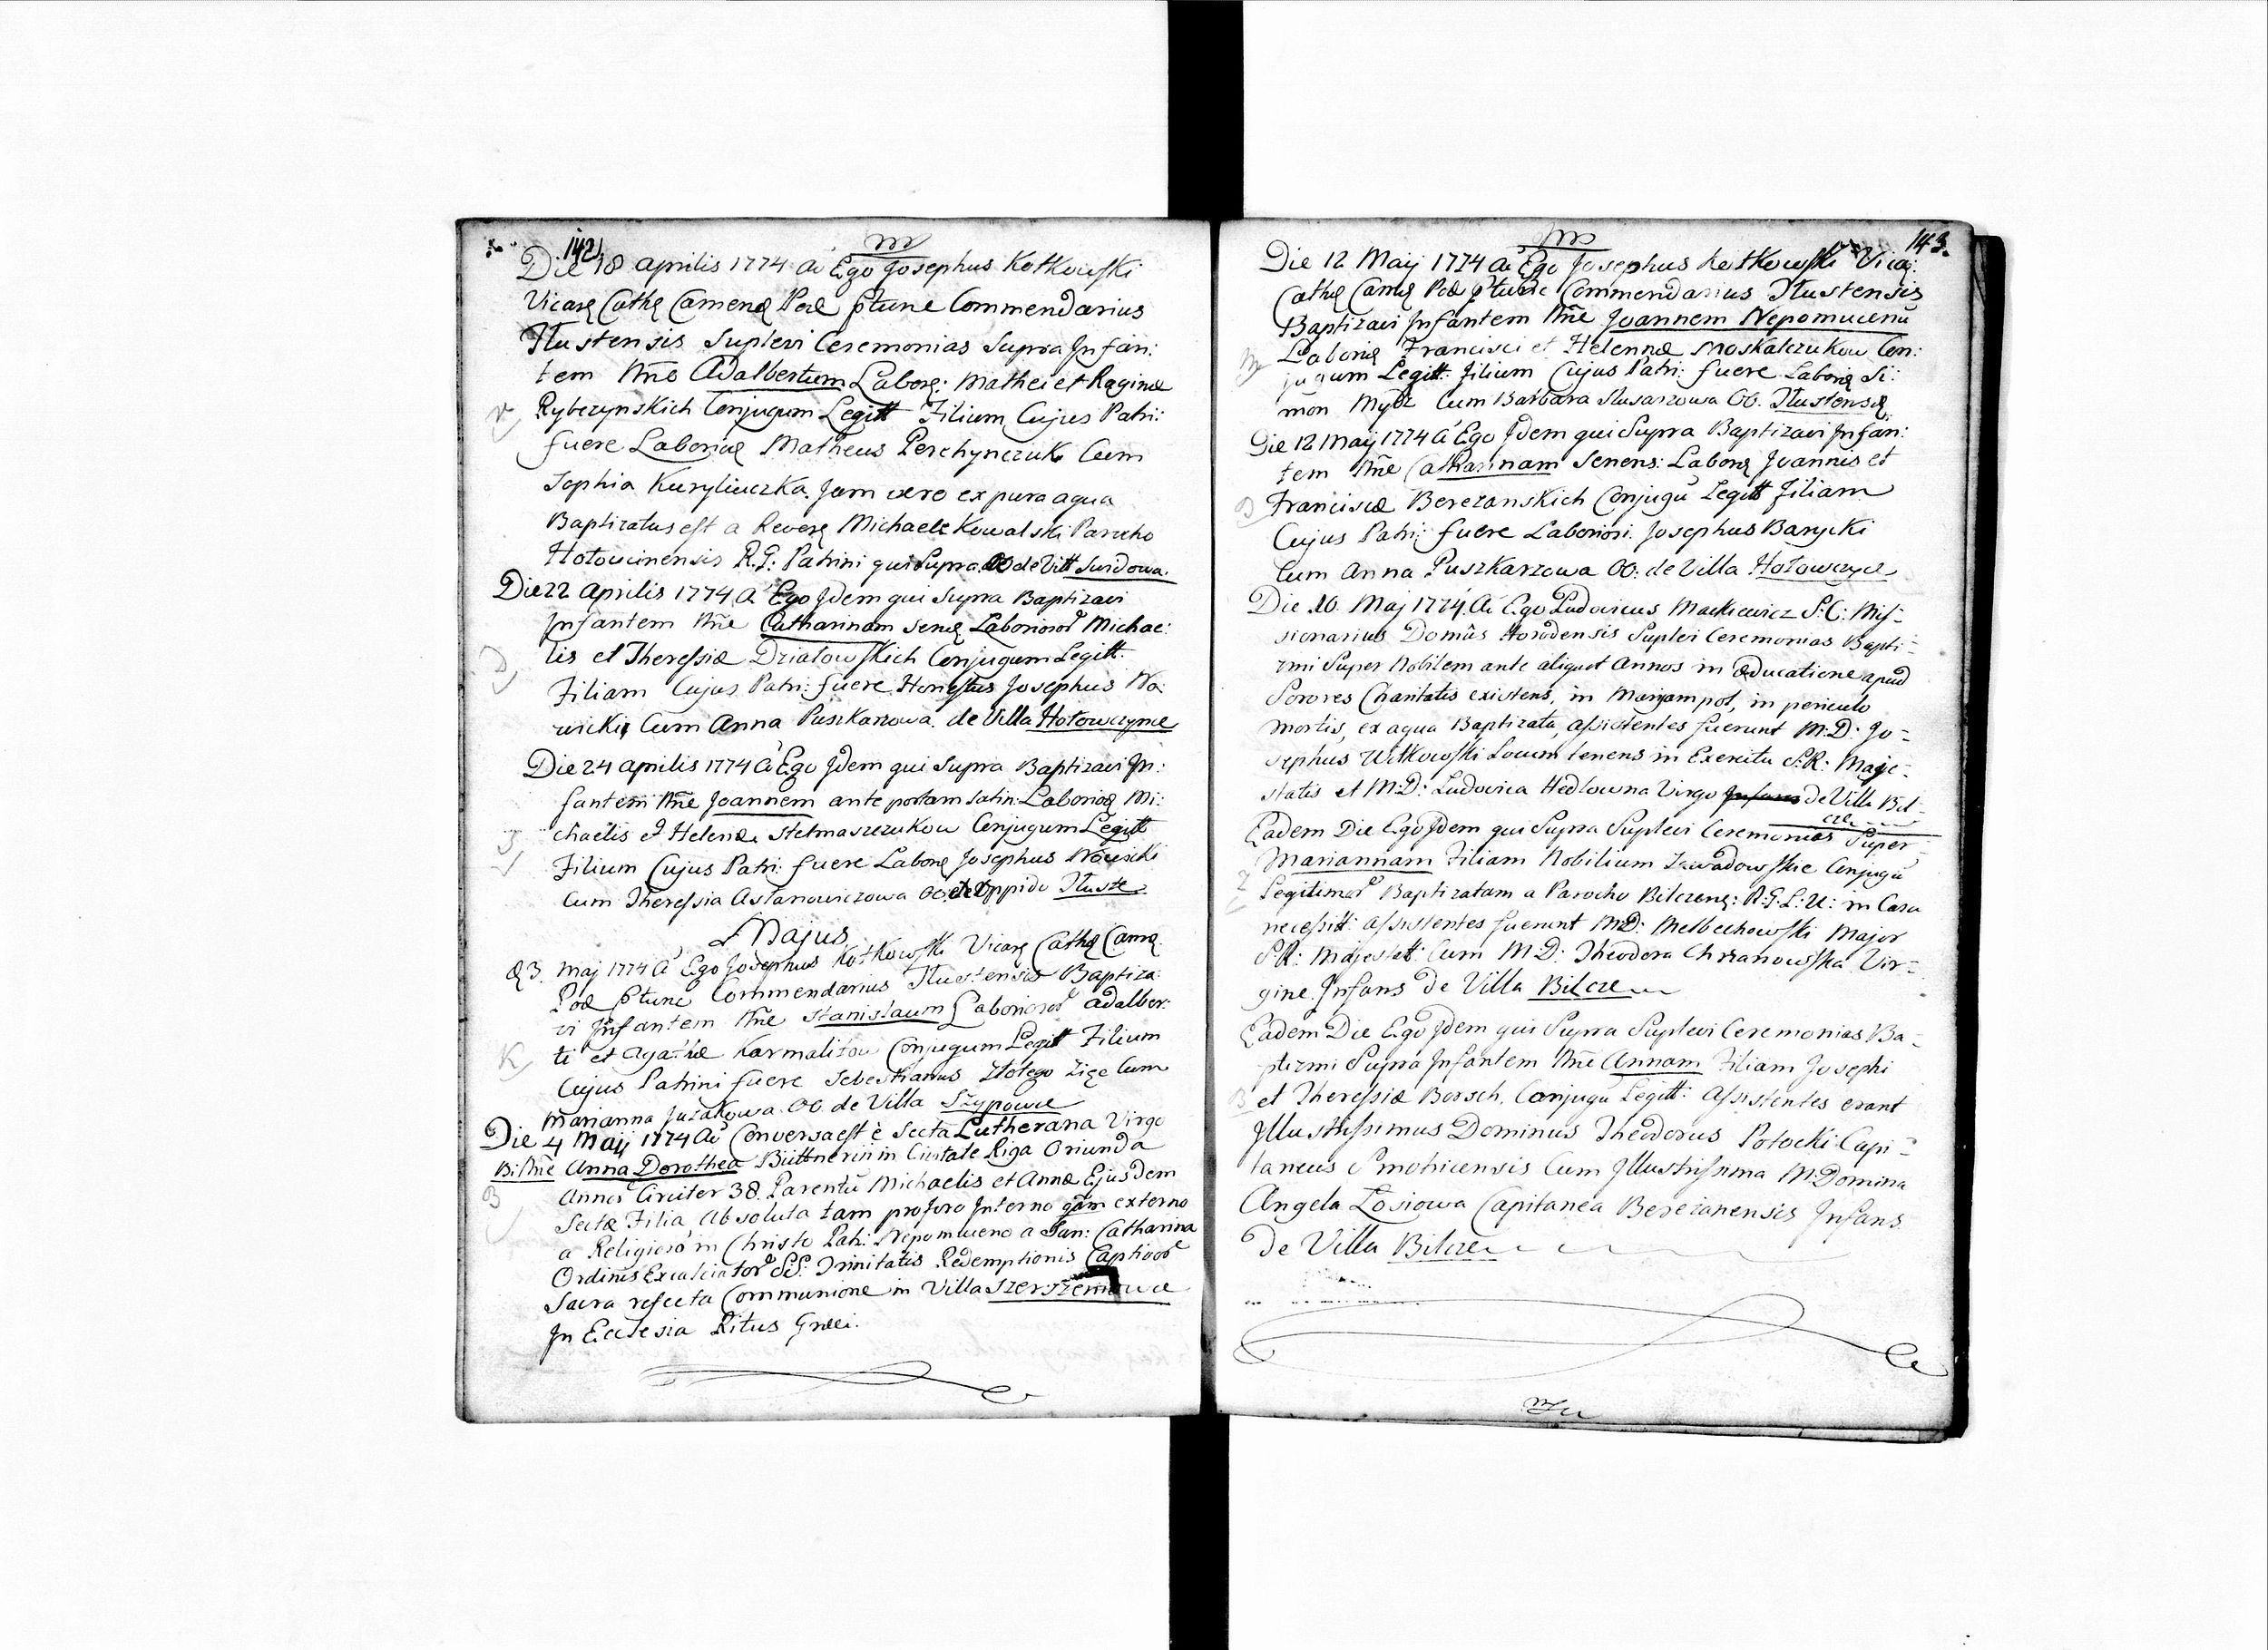 142
Die 18 Aprilis 1774 Ao Ego Josephus Kotkowski
Vicarę Cathę Camenę Podę ptunc Commendarius
Tłustensis Suplevi Ceremonias Supra Infan:
tem Nne Adalbertum Laborę: Mathei et Reginæ
Rybczynskich Conjugum Legitt Filium Cujus Patri:
fuere Laborioę Matheus Perchynczuk Cum
Sophia Kuryliuczka. Jam vero ex pura aqua
Baptizatus est a Reverę Michaele Kowalski Parocho
Hołowcinensis R.G: Patrini qui Supra OO de Vitt Swidowa.
Die 22 Aprilis 1774 A Ego Idem qui Supra Baptizavi
Infantem Nne Catharinam Senę Laboriosor Michae:
lis et Theressiæ Działowskich Conjugum Legitt.
Filiam Cujus Patri: fuere Honestus Josephus No:
wicki Cum Anna Puszkarzowa de Villa Hołowczynce
Die 24 Aprilis 1774 A Ego Idem qui Supra Baptizavi In:
fantem Nne Joannem ante portam latin: Laborioę Mi:
chaelis et Helenæ Stelmaszczukow Conjugum Legitt
Filium Cujus Patri: fuere Laborę Josephus Nowicki
Cum Theressia Astanowiczowa OO. de Oppido Tłuste
Majus
D 3. Maj 1774 A Ego Josephus Kotkowski Vicarę Cathę Camę
Podę ptunc Commendarius Tłustensis Baptiza:
vi Infantem Nne Stanislaum Laboriosor Adalber:
ti et Agathæ Karmalitow Conjugum Legitt Filium
Cujus Patrini fuere Sebestianus Złotego Zięc Cum
Marianna Juzakowa OO. de Villa Szypowce
Die 4 Maij 1774 Ao Conversa est è Secta Lutherana Virgo
Bi:Nne Anna Dorothea Büttnerin in Civitate Riga Oriunda
Annor Circiter 38. Parentū Michaelis et Annæ Ejusdem
Sectæ Filia, Absoluta tam pro foro Interno qam externo
a Religioso in Christo Patr: Nepomuceno a San: Catharina
Ordinis Excalciator S.S: Trinitatis Redemptionis Captivor
Sacra refecta Communione in Villa Szerszeniowce
In Ecclesia Ritus Græci.
143.
Die 12 Maij 1774 Ao Ego Josephus Kotkowski Vicaę:
Cathę Camę Podę ptunc Commendarius Tłustensis
Baptizavi Infantem Nne Joannem Nepomucenū
Laborię Francisci et Helennæ Moskalczukow Con:
jugum Legitt: Filium Cujus Patri: fuere Laborię Si:
mon Mydz Cum Barbara Slusarzowa OO. Tłustensę
Die 12 Maij 1774 A Ego Idem qui Supra Baptizavi Infan:
tem Nne Catharinam Senens: Laborę Joannis et
Franciscæ Berezanskich Conjugū Legitt Filiam
Cujus Patri: fuere Laboriosi Josephus Barycki
Cum Anna Puszkarzowa OO: de Villa Hołowczyce
Die 10. Maj 1774. Ao Ego Ludovicus Mackiewicz S:C: Mis-
sionarius Domûs Horodensis Suplevi Ceremonias Bapti-
zmi Super Nobilem ante aliquot Annos in æducatione apud
Sorores Charitatis existens, in Maryampol, in periculo
mortis, ex aqua Baptizata, assistentes fuerunt M:D: Jo-
sephus Witkowski Locum tenens in Exercitu S:R: Maje-
statis et M:D: Ludovica Hedlowna Virgo Infans de Villa Bil-
cze
Eadem Die Ego Idem qui Supra Suplevi Ceremonias Super
Mariannam Filiam Nobilium Zawadowskie Conjugū
Legitimor Baptizatam a Parocho Bilczenę: R:G:L:U: in Casu
necessitt: assistentes fuerunt M:D: Melbechowski Major
S:R: Majestatt: Cum M:D: Theodora Chrzanowska Vir-
gine. Infans de Villa Bilcze
Eadem Die Ego Idem qui Supra Suplevi Ceremonias Ba-
ptizmi Supra Infantem Nne Annam Filiam Josephi
et Theressiæ Borsch. Conjugū Legitt: Assistentes erant
Illustrissimus Dominus Theodorus Potocki Capi-
taneus Smotricensis Cum Illustrissima M:Domina
Angela Łosiowa Capitanea Berezanensis Infans
de Villa Bilcze